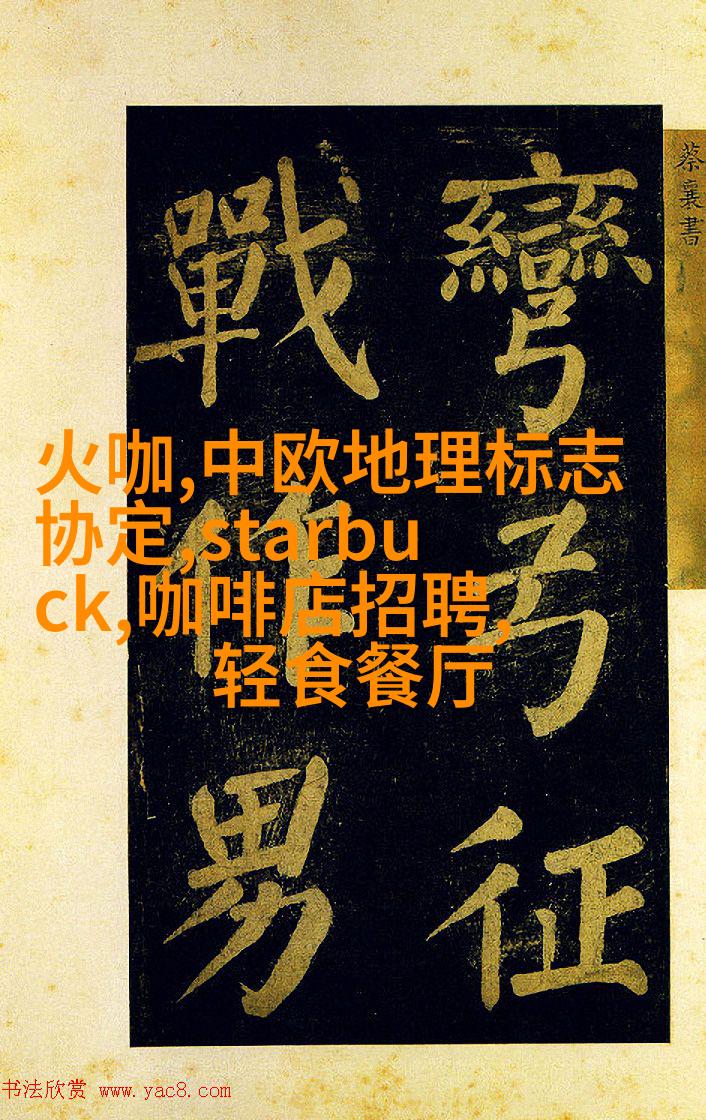 蔡襄書
彎弓征
戰作男
火咖,中欧地理标志
协定,starbu
ck,咖啡店招聘,
轻食餐厅
书法欣赏 www.yac8.com